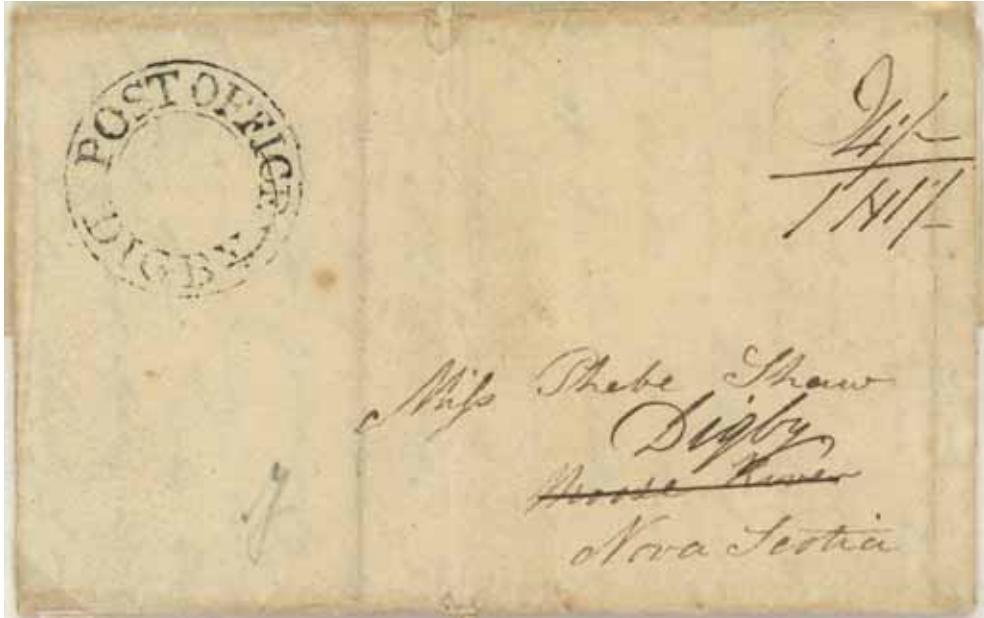 POST OFFICE
DIGBY
Miss Phebe Shaw
Digby
Moose River
Nova Scotia